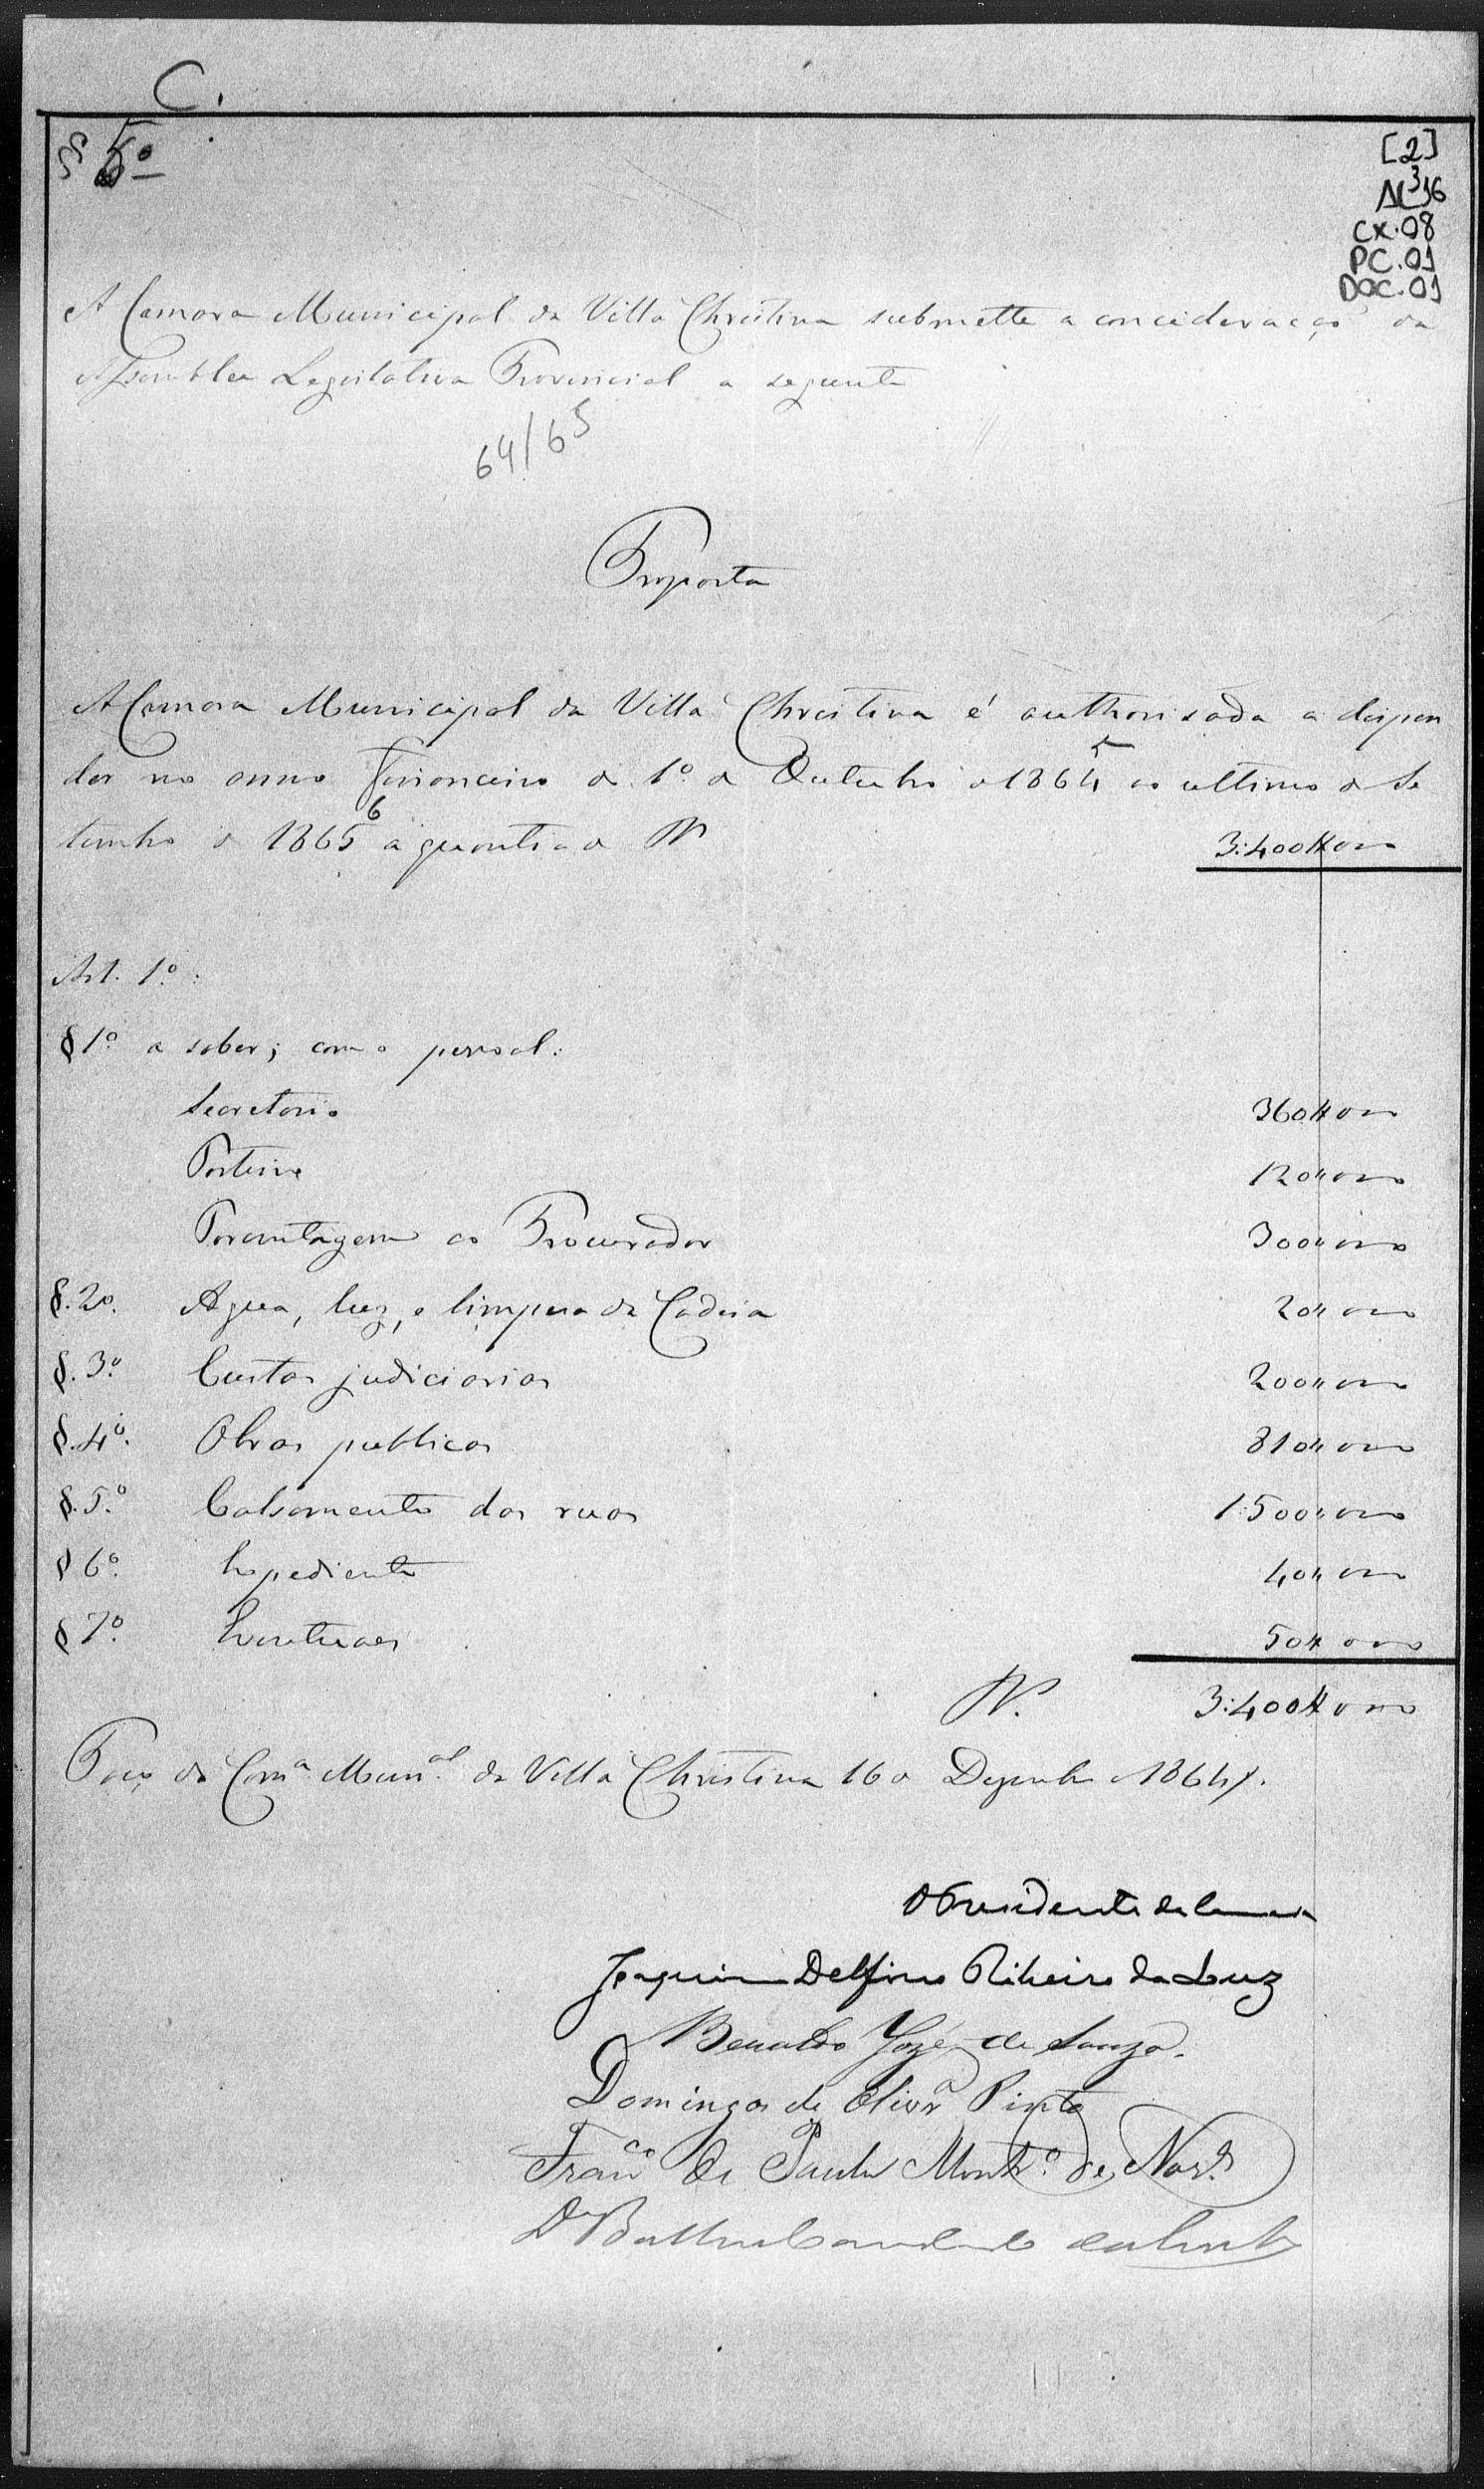 C.
§ 5º
[2]
AL 316
CX.08
PC.01
DOC.01
A Camara Municipal da Villa Christina submette a concideração da
Assemblea Legislativa Provincial a seguinte
64/65
Proposta
A Camara Municipal da Villa Christina é authorisada a dispen
der no anno financeiro de 1º de Outubro de 1864 5 ao ultimo de Se
tembro de 1865 6 a quantia de Rs 3:400$000
Art. 1º.
§ 1º a saber; com o pessoal:
Secretario 360$000
Porteiro 120$000
Porcentagem ao Procurador 300$000
§. 2º. Agua, luz, e limpesa da Cadeia 20$000
§. 3º. Custas judiciarias 200$000
§. 4º. Obras publicas 810$000
§. 5º. Calsamento das ruas 1:500$000
§ 6º. Expediente 40$000
§ 7º. Eventuaes 50$000
Rs. 3:400$000
Paço da Camª Munal da Villa Christina 16 de Dezembro de 1864.
O Presidente da Camara
Joaquim Delfino Ribeiro da Luz
Beraldo Joze de Souza.
Domingos de Olivrª Pinto
Franco de Paula Montrº de Norª
Dr